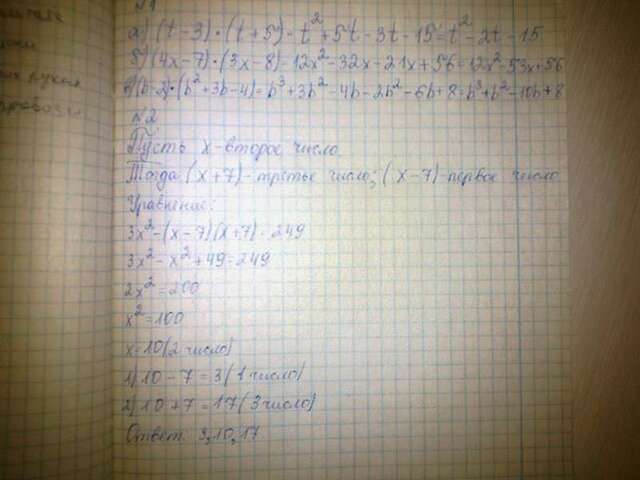 №1
а) (t-3)·(t+5)=t²+5t-3t-15=t²-2t-15
б) (4x-7)·(3x-8)=12x²-32x-21x+56=12x²-53x+56
в) (b-2)·(b²+3b-4)=b³+3b²-4b-2b²-6b+8=b³+b²-10b+8
№2
Пусть x-второе число
Тогда (x+7)-третье число; (x-7)-первое число
Уравнение:
3x²-(x-7)(x+7)=249
3x²-x²+49=249
2x²=200
x²=100
x=10(2 число)
1) 10-7=3(1 число)
2) 10+7=17(3 число)
Ответ: 3,10,17